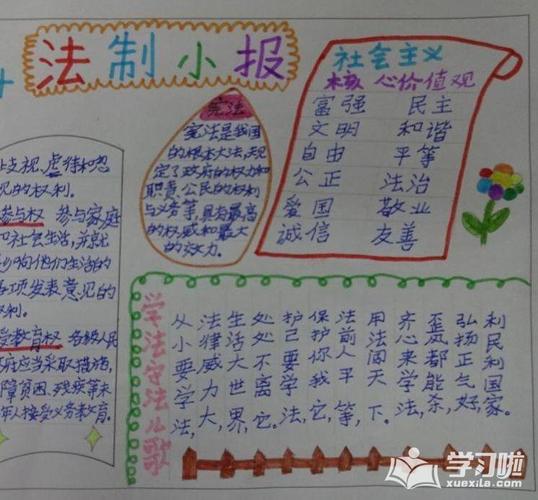 法制小报
止歧视,虐待和忽
视的权利。
参与权 参与家庭
和社会生活,并就
影响他们生活的
各项发表意见的
权利。
受教育权 各级人民
府应当采取措施,
障贫困、残疾等未
年人接受义务教育.
宪法
宪法是我国
的根本大法,规
定了政府的权力和
职责、公民的权利
与义务等,具有最高
的权威和最大
的效力.
社会主义
核心价值观
富强 民主
文明 和谐
自由 平等
公正 法治
爱国 敬业
诚信 友善
学法守法儿歌
从小要学法,
法律威力大,
生活大世界,
处处不离它。
护己要学法,
保护你我它,
法前人平等,
用法闯天下。
齐心来学法,
歪风都能杀,
弘扬正气好,
利民利国家。
学习啦
xuexila.com